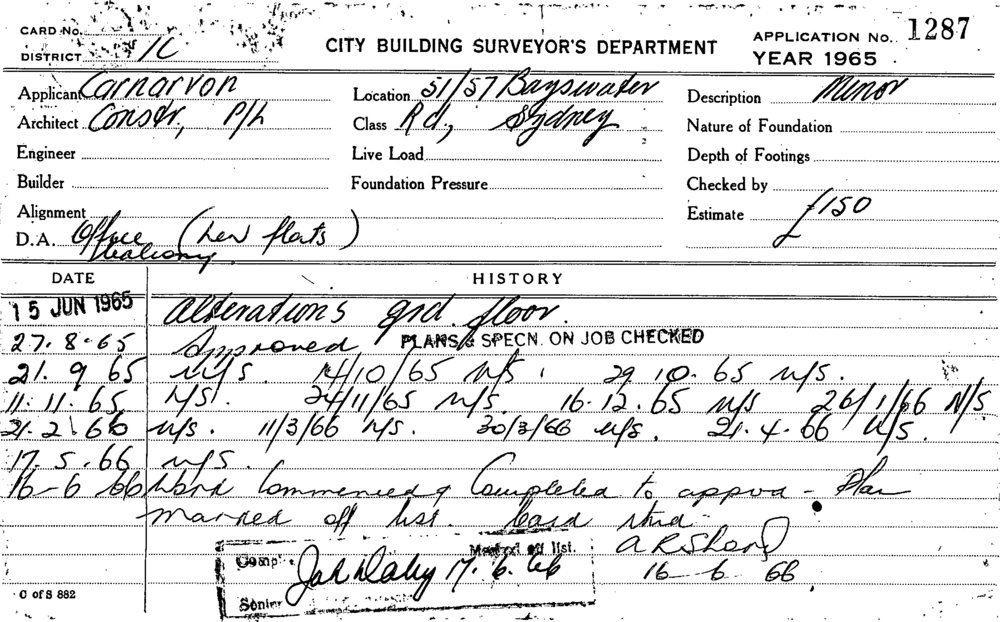 CARD No.
DISTRICT 1C
CITY BUILDING SURVEYOR'S DEPARTMENT
APPLICATION No. 1287
YEAR 1965
Applicant Carnarvon Location 51/57 Bayswater Description Minor
Architect Constr, P/L Class Rd, Sydney Nature of Foundation
Engineer Live Load Depth of Footings
Builder Foundation Pressure Checked by
Alignment Estimate £150
D.A. Office (new flats)
DATE HISTORY
15 JUN 1965 Alterations grd. floor.
27.8.65 Approved PLANS & SPECN. ON JOB CHECKED
21.9.65 N/S. 14/10/65 N/S. 29.10.65 N/S.
11.11.65 N/S. 24/11/65 N/S. 16.12.65 N/S 26/1/66 N/S
21.2.66 N/S. 11/3/66 N/S. 30/3/66 N/S. 21.4.66 N/S.
17.5.66 N/S.
16-6 66 Work Commenced & Completed to appvd - Plan
marked off list. Card
Compl Marked off list.
17.6.66 16-6 66
Senior
C of S 882